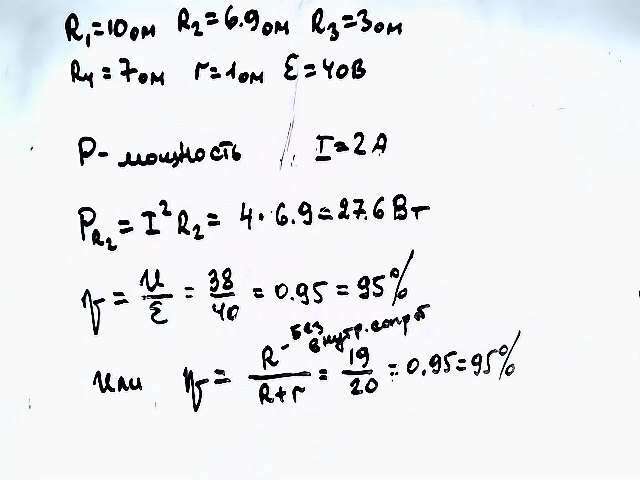 R₁=10ом R₂=6.9ом R₃=3ом
R₄=7ом r=1ом ε=40В
P- мощность I=2A
P_R₂=I²R₂= 4·6.9=27.6Вт
η = U/ε = 38/40 = 0.95 = 95%
или η = R - без внутр. сопрот / R+r = 19/20 = 0.95=95%